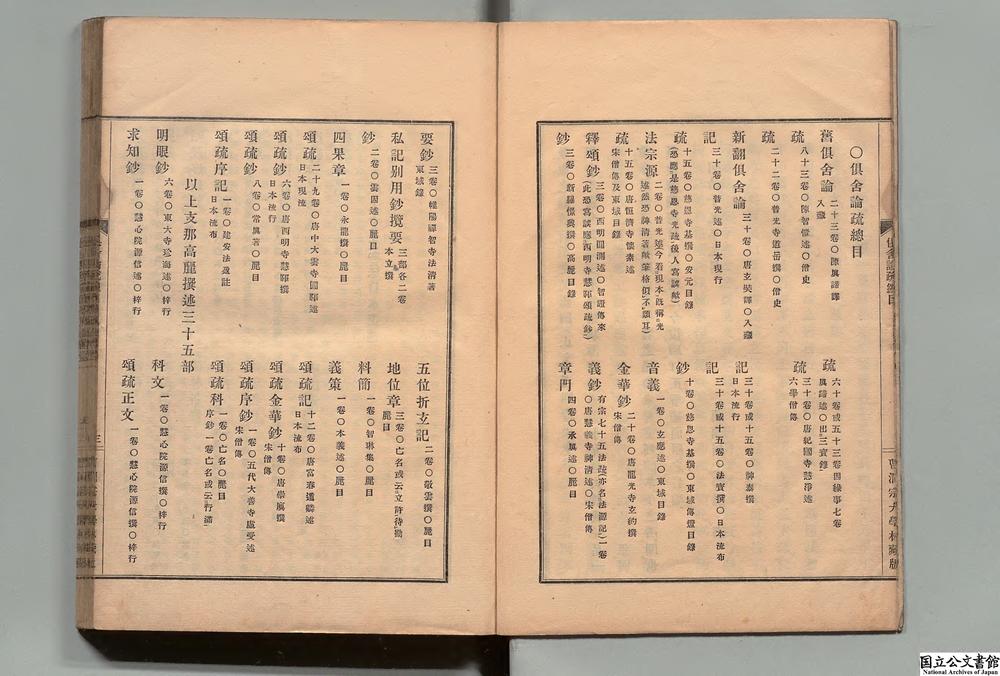 〇俱舍論疏總目
舊俱舍論 二十三卷〇陳眞諦譯〇入藏
疏 六十卷或五十三卷因緣事七卷
眞諦述〇出三寶錄
疏 八十三卷〇陳智愷述〇僧史
疏 三十卷〇唐紀國寺慧淨述
六學僧傳
疏 二十二卷〇普光寺道岳撰〇僧史
新翻俱舍論 三十卷〇唐玄奘譯〇入藏
記 三十卷或十五卷〇神泰撰
日本流行
記 三十卷〇普光述〇日本現行
記 三十卷或十五卷〇法寶撰〇日本流布
疏 十五卷〇慈恩寺基撰〇安元目錄
(恐應是慈恩寺光疏後人寫誤歟)
鈔 十卷〇慈恩寺基撰〇東域傳燈目錄
法宗源 二卷〇普光述今看現本既稱光
述然恐神清著歟筆格似(不類耳)
音義 一卷〇玄應述〇東域目錄
疏 十五卷〇唐恒濟寺懷素述
宋僧傳及東域目錄
金華鈔 二十卷〇唐龍光寺玄約撰
宋僧傳
釋頌鈔 三卷〇西明圓測述〇智證傳來
(此恐寫誤應西明寺慧暉頌疏鈔)
義鈔 有宗七十五法疏(亦名法源記)一卷
〇唐慧義寺神清述〇宋僧傳
鈔 三卷〇新羅憬興撰〇高麗目錄
章門 四卷〇承眞述〇麗目
要鈔 三卷〇幛陽禪智寺法清著
東域錄
五位折玄記 二卷〇敬雲撰〇麗目
私記別用鈔攬要 三部各二卷
本立撰
地位章 三卷〇亡名或云立許待勘
麗目
鈔 二卷〇雲固述〇麗目
料簡 一卷〇智琳集〇麗目
四果章 一卷〇永龍撰〇麗目
義策 一卷〇本義述〇麗目
頌疏 二十九卷〇唐中大雲寺圓暉述
日本現流
頌疏記 十二卷〇唐富春遁麟述
日本流布
頌疏鈔 六卷〇唐西明寺慧暉撰
日本流行
頌疏金華鈔 十卷〇唐崇廙撰
宋僧傳
頌疏鈔 八卷〇常眞著〇麗目
頌疏序鈔 一卷〇五代大善寺虛受述
宋僧傳
頌疏序記 一卷〇建安法盈註
日本流布
頌疏科 一卷〇亡名〇麗目
序鈔一卷亡名或云行滿
以上支那高麗撰述三十五部
明眼鈔 六卷〇東大寺珍海述〇梓行
科文 一卷〇慧心院源信撰〇梓行
求知鈔 一卷〇慧心院源信述〇梓行
頌疏正文 一卷〇慧心院源信撰〇梓行
三
国立公文書館
National Archives of Japan